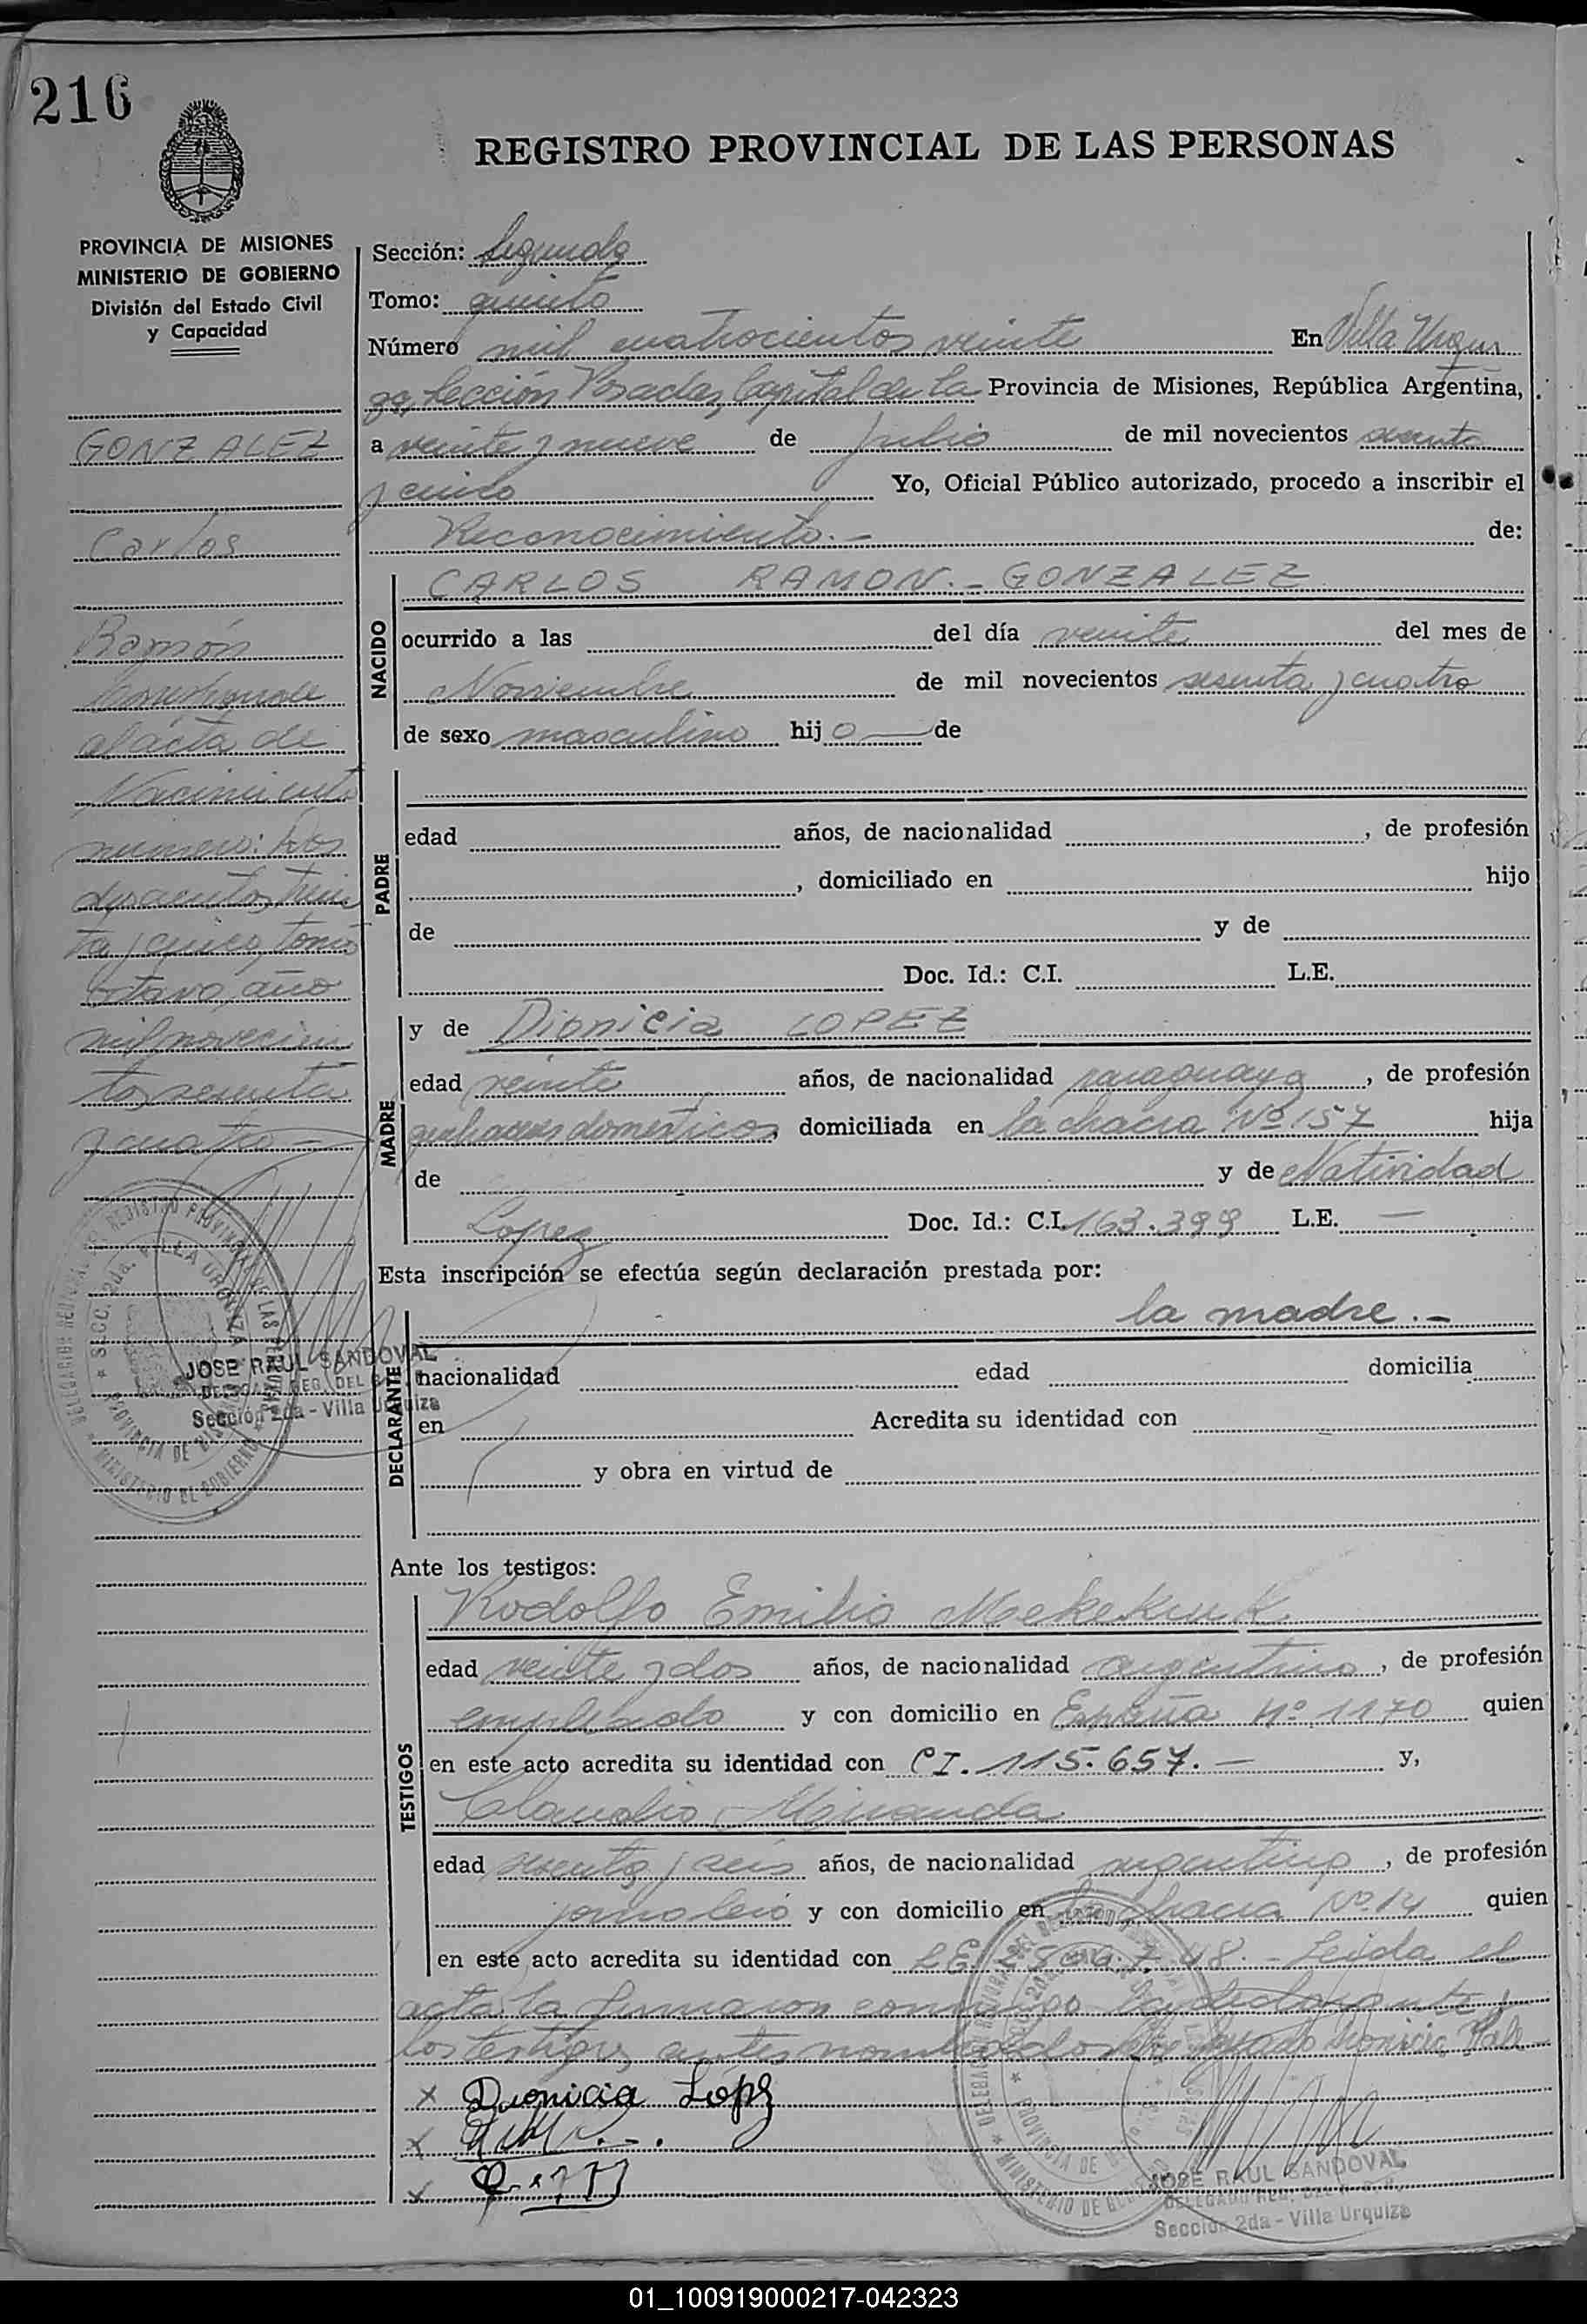 216
REGISTRO PROVINCIAL DE LAS PERSONAS
PROVINCIA DE MISIONES
MINISTERIO DE GOBIERNO
División del Estado Civil
y Capacidad
GONZALEZ
Carlos
Ramón
Corresponde
al acta de
Nacimiento
número: dos
cientos, trein
ta y cinco, tomo
octavo, año
mil novecien
tos sesenta
y cuatro
Sección: Segunda
Tomo: quinto
Número mil cuatrocientos veinte En Villa Urqui
za, Sección Posadas, Capital de la Provincia de Misiones, República Argentina,
a veinte y nueve de Julio de mil novecientos sesenta
y cinco Yo, Oficial Público autorizado, procedo a inscribir el
Reconocimiento.- de:
NACIDO
CARLOS RAMON.- GONZALEZ
ocurrido a las del día veinte del mes de
Noviembre de mil novecientos sesenta y cuatro
de sexo masculino hijo de
PADRE
edad años, de nacionalidad , de profesión
, domiciliado en hijo
de y de
Doc. Id.: C.I. L.E.
MADRE
y de Dionicia LOPEZ
edad veinte años, de nacionalidad paraguaya, de profesión
quehaceres domésticos domiciliada en la chacra Nº 157 hija
de y de Natividad
Lopez Doc. Id.: C.I. 163.399 L.E. —
Esta inscripción se efectúa según declaración prestada por:
DECLARANTE
la madre.-
nacionalidad edad domicilia
en Acredita su identidad con
y obra en virtud de
JOSE RAUL SANDOVAL
Sección 2da - Villa Urquiza
Ante los testigos:
TESTIGOS
Rodolfo Emilio
edad veinte y dos años, de nacionalidad argentino, de profesión
empleado y con domicilio en España Nº 1170 quien
en este acto acredita su identidad con CI. 115.657.- y,
Claudio Miranda
edad sesenta y seis años, de nacionalidad argentino, de profesión
jornalero y con domicilio en la chacra Nº 14 quien
en este acto acredita su identidad con LE. - Leida el
acta la firmaron conmigo la declarante y
los testigos antes nombrados Dionicia Vale
x Dionicia López
x
x
JOSE RAUL SANDOVAL
DELEGADO REG.
Sección 2da - Villa Urquiza
01_100919000217-042323